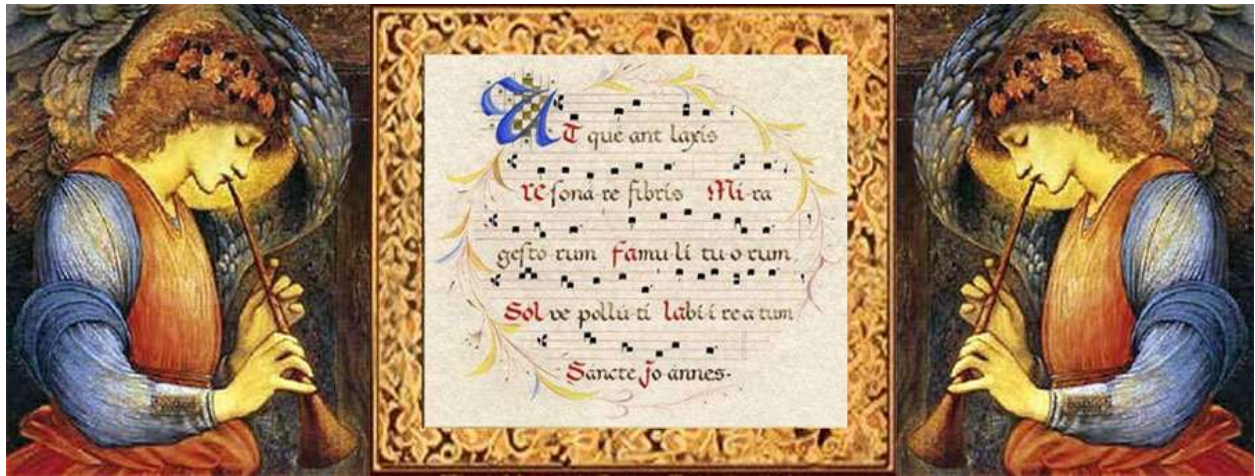 UT qué ant laxis
reſoná-re fibris Mi-ra
geſtó-rum famu-li tu-o-rum
Sol ve pollú-ti labí-i re-a-tum
Sáncte Jo ánnes.